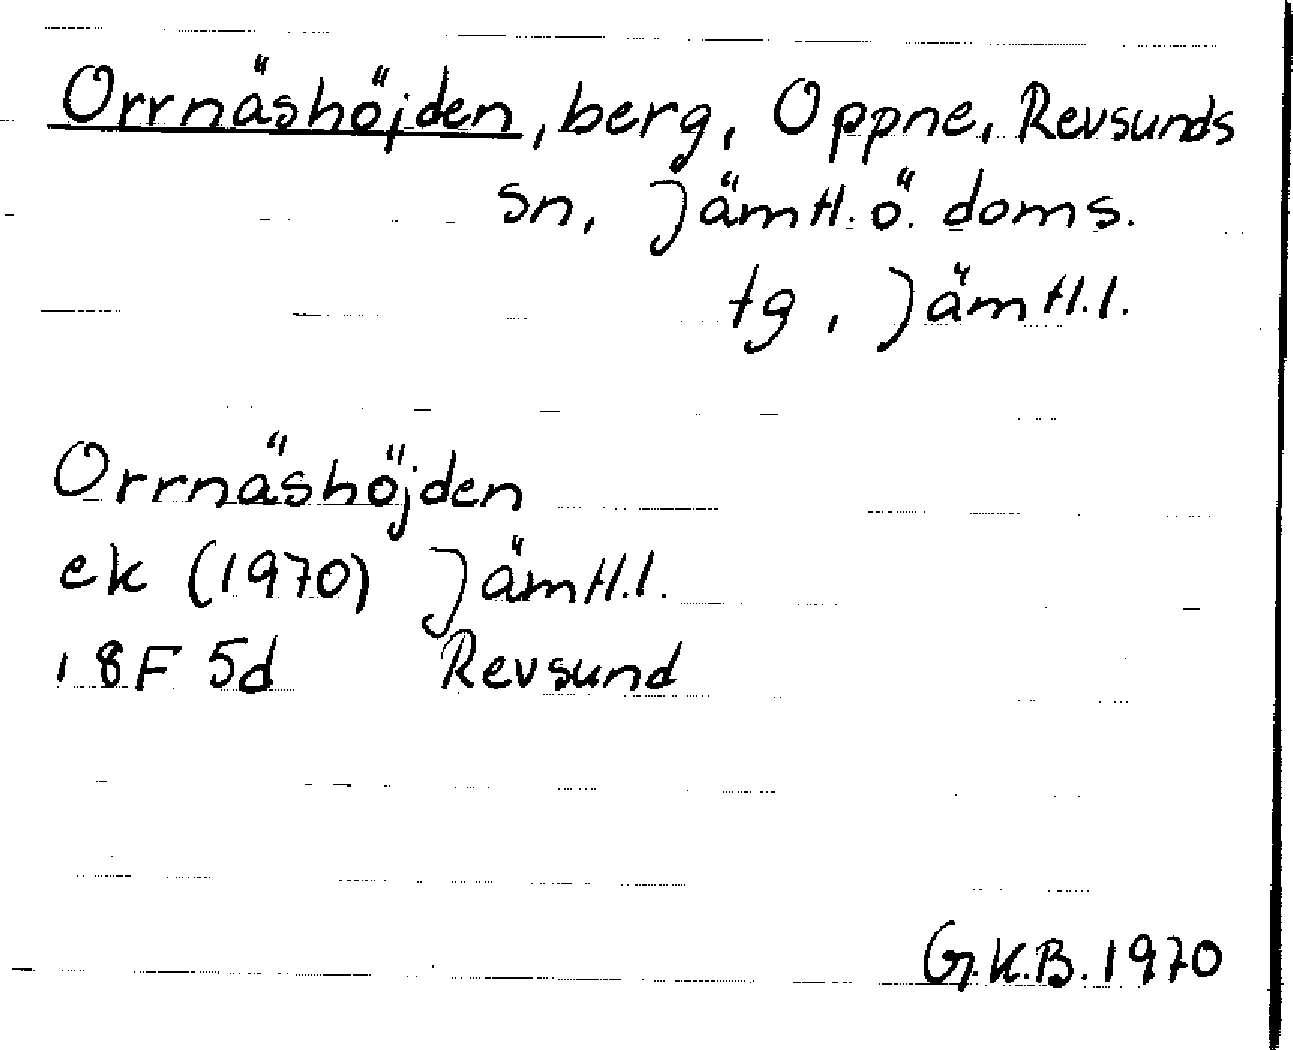 Orrnäshöjden, berg, Oppne, Revsunds
sn, Jämtl. ö. doms.
tg, Jämtl.l.
Orrnäshöjden
ek (1970) Jämtl.l.
18F 5d Revsund
G.K.B. 1970